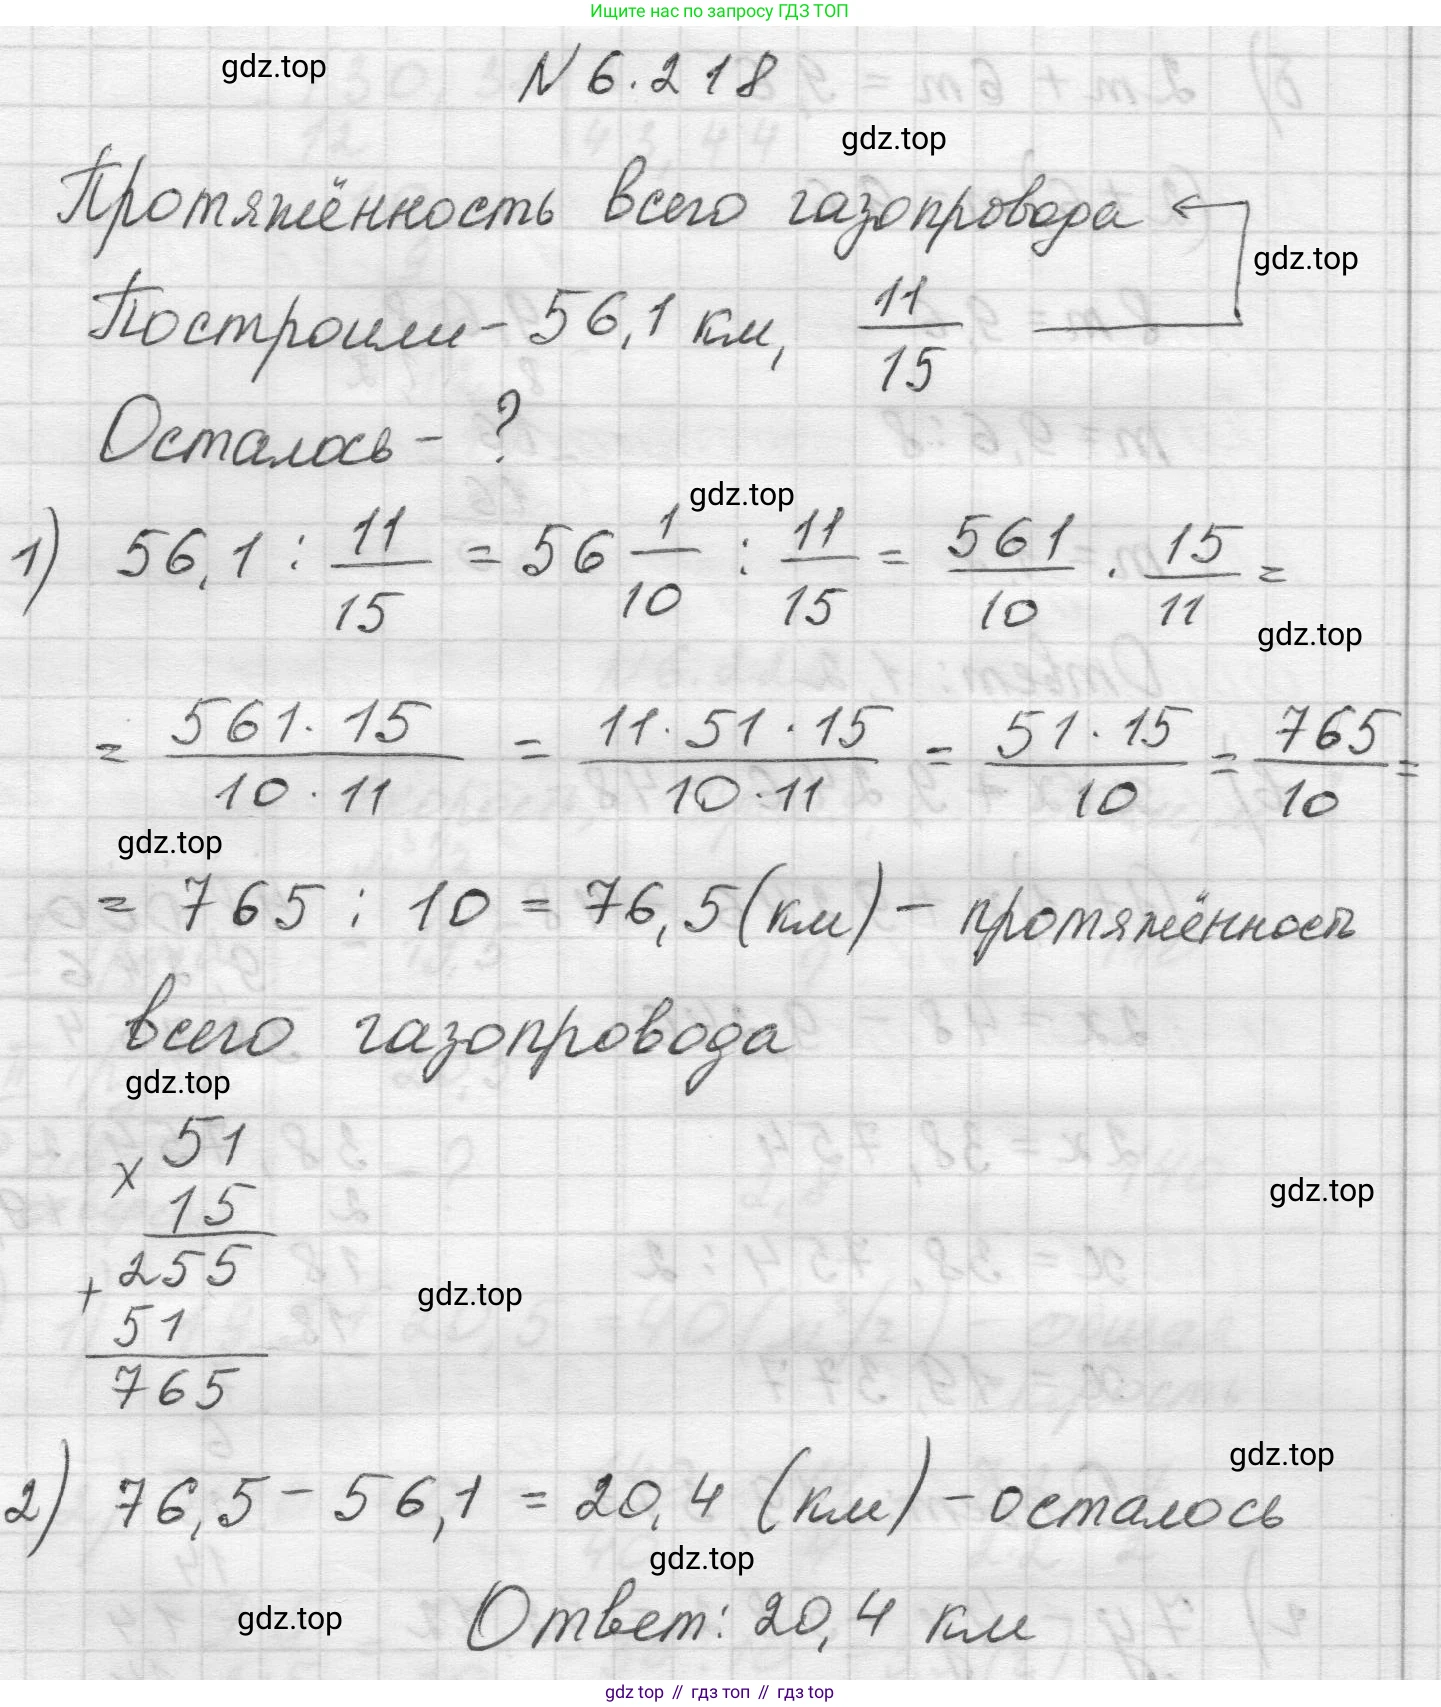 Ищите нас по запросу ГДЗ ТОП
gdz.top
N 6.218
gdz.top
Протяжённость всего газопровода
gdz.top
Построили - 56,1 км, 11/15
Осталось - ?
gdz.top
1) 56,1 : 11/15 = 56 1/10 : 11/15 = 561/10 · 15/11 =
gdz.top
= 561 · 15 / 10 · 11 = 11 · 51 · 15 / 10 · 11 = 51 · 15 / 10 = 765/10 =
gdz.top
= 765 : 10 = 76,5 (км) - протяжённость
всего газопровода
gdz.top
51
x
15
gdz.top
255
+
gdz.top
51
765
gdz.top
2) 76,5 - 56,1 = 20,4 (км) - осталось
gdz.top
gdz.top
Ответ: 20,4 км
gdz top // гдз топ // гдз top